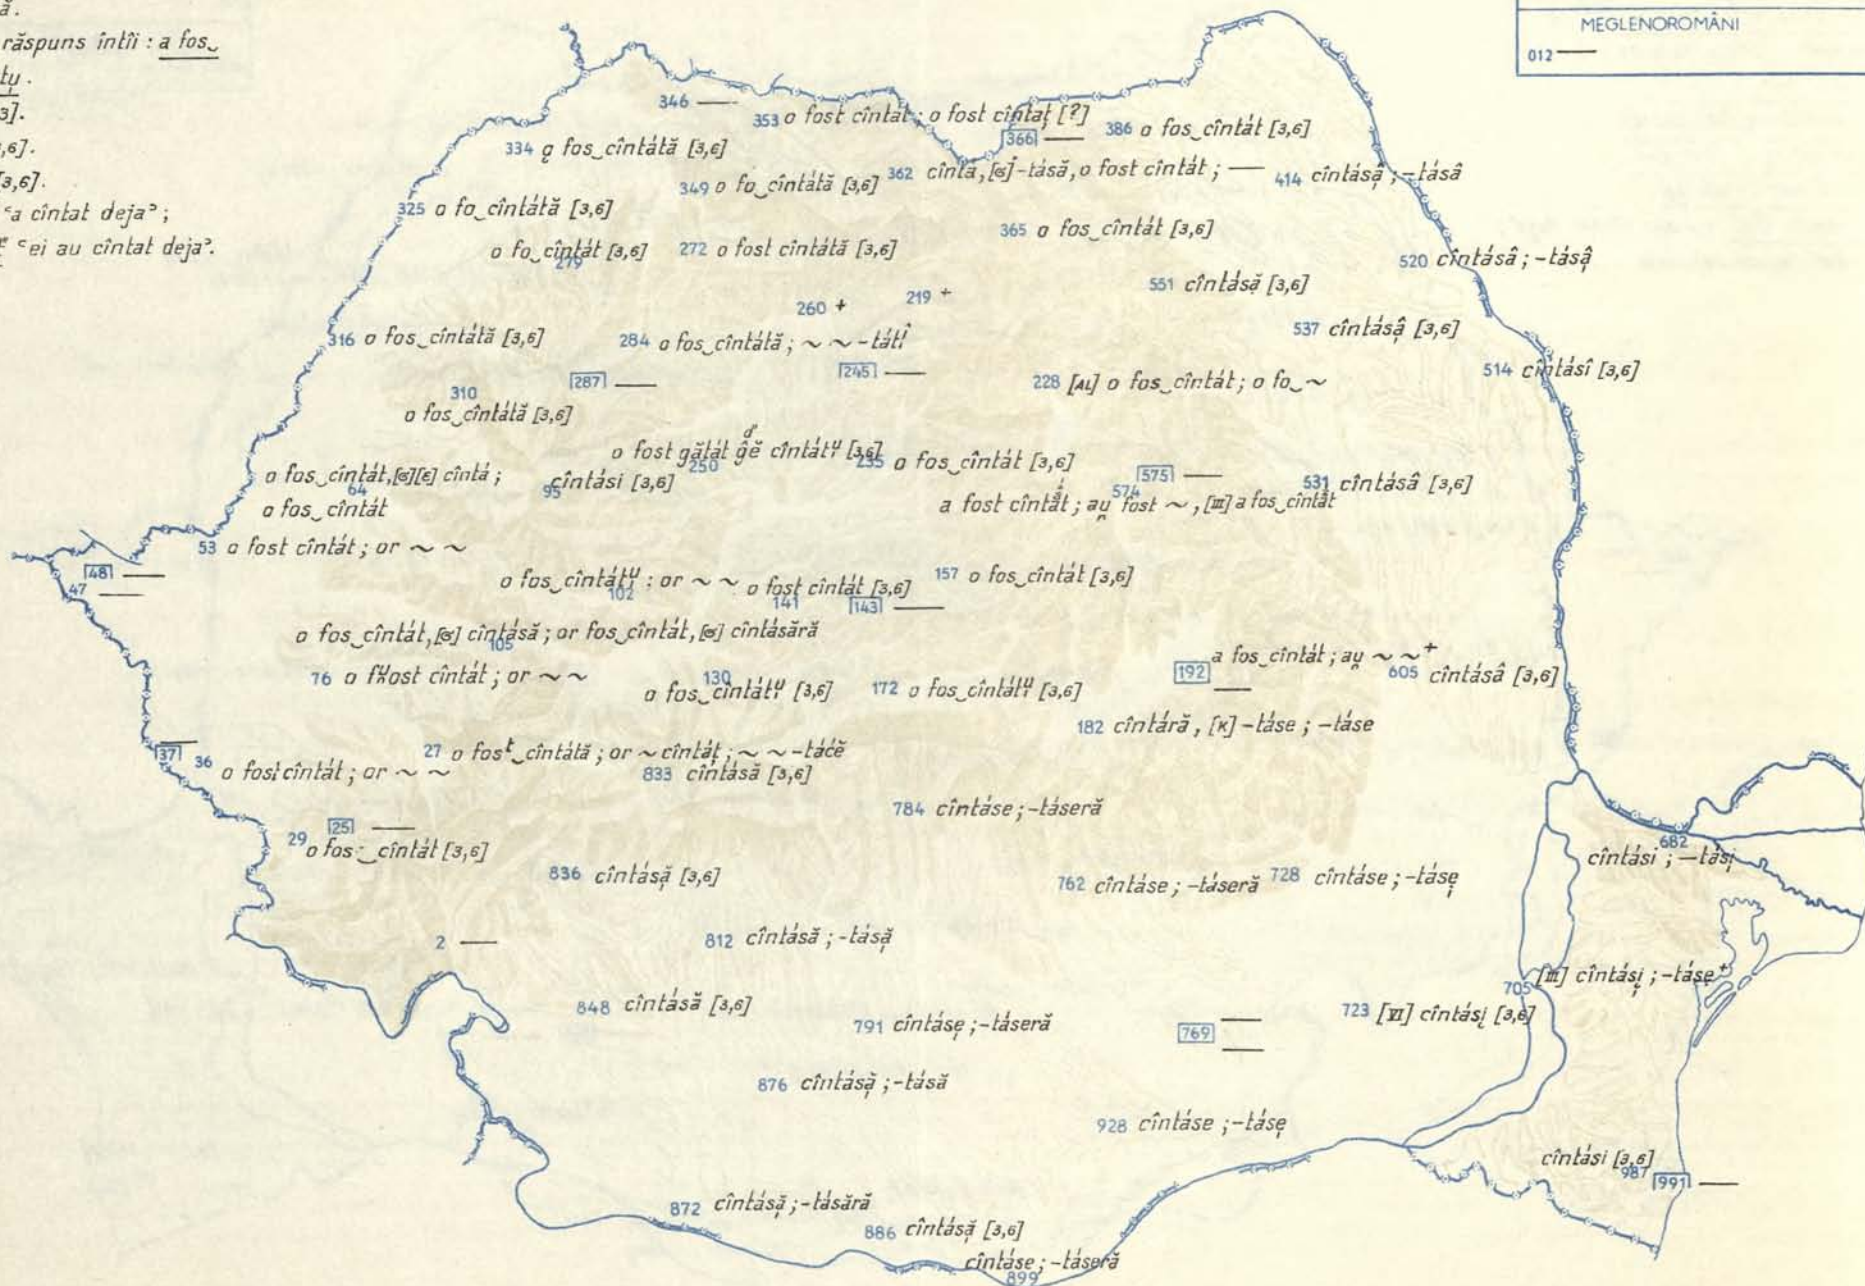 ă.
răspuns întîi : a fos‿
tu̯.
3].
,6].
[3,6].
ᶜa cîntat deja ᵓ;
ᶜei au cîntat deja ᵓ.
MEGLENOROMÂNI
012 —
346 —
353 o fost cîntát; o fost cîntaț [?]
366 —
386 o fos‿cîntát [3,6]
334 o̯ fos‿cîntátă [3,6]
349 o fo‿cîntátă [3,6]
362 cîntá, [σ]-tásă, o fost cîntát; —
414 cîntásâ̦; -tásâ
325 o fo‿cîntátă [3,6]
365 o fos‿cîntát [3,6]
o fo‿cîntát [3,6]
279
272 o fost cîntátă [3,6]
520 cîntásâ; -tásâ̦
551 cîntásă [3,6]
260 +
219 +
537 cîntásâ̦ [3,6]
316 o fos‿cîntátă [3,6]
284 o fos‿cîntátă; ~ ~ -tátî
514 cîntásî [3,6]
287 —
245 —
228 [AL] o fos‿cîntát; o fo‿~
310
o fos‿cîntátă [3,6]
o fost gătát ğĕ cîntátᵘ [3,6]
250
235 o fos‿cîntát [3,6]
o fos‿cîntát, [σ][ε] cîntá;
64
o fos‿cîntát
95 cîntási [3,6]
575 —
574
a fost cîntất; au̯ fost ~, [III] a fos‿cîntất
531 cîntásâ [3,6]
53 o fost cîntát; or ~ ~
48 —
47 —
o fos‿cîntátᵘ : or ~ ~
102
o fost cîntát [3,6]
141
143 —
157 o fos‿cîntát [3,6]
o fos‿cîntát, [σ] cîntásă; or fos‿cîntát, [σ] cîntásără
105
a fos‿cîntát; au̯ ~ ~ +
192 —
605 cîntásâ [3,6]
76 o fᵘost cîntát; or ~ ~
130
o fos‿cîntátᵘ [3,6]
172 o fos‿cîntátᵘ [3,6]
182 cîntáră, [K] -táse; -táse
37 —
36 o fost cîntát; or ~ ~
27 o fosᵗ‿cîntátă; or ~ cîntáț; ~ ~ -tácĕ
833 cîntásă [3,6]
784 cîntáse; -táseră
25 —
29 o fos‿cîntát [3,6]
682
cîntási; -tási̦
836 cîntásă̦ [3,6]
762 cîntáse; -táseră
728 cîntáse; -táse̦
2 —
812 cîntásă; -tásă̦
705 [III] cîntási̦; -táse̦ +
848 cîntásă [3,6]
791 cîntáse̦; -táseră
769 —
—
723 [VI] cîntási̦ [3,6]
876 cîntásă̦; -tásă
928 cîntáse; -táse̦
cîntási [3,6]
987
991 —
872 cîntásă̦; -tásără
886 cîntásă̦ [3,6]
cîntáse; -táseră
899